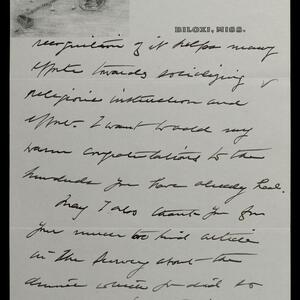 BILOXI, MISS.
recognition of it helps many
efforts towards socializing
religious instruction and
effort. I want to add my
warm congratulations to the
hundreds you have already had.
May I also thank you for
your much too kind article
in the Survey about the
dinner which you did so